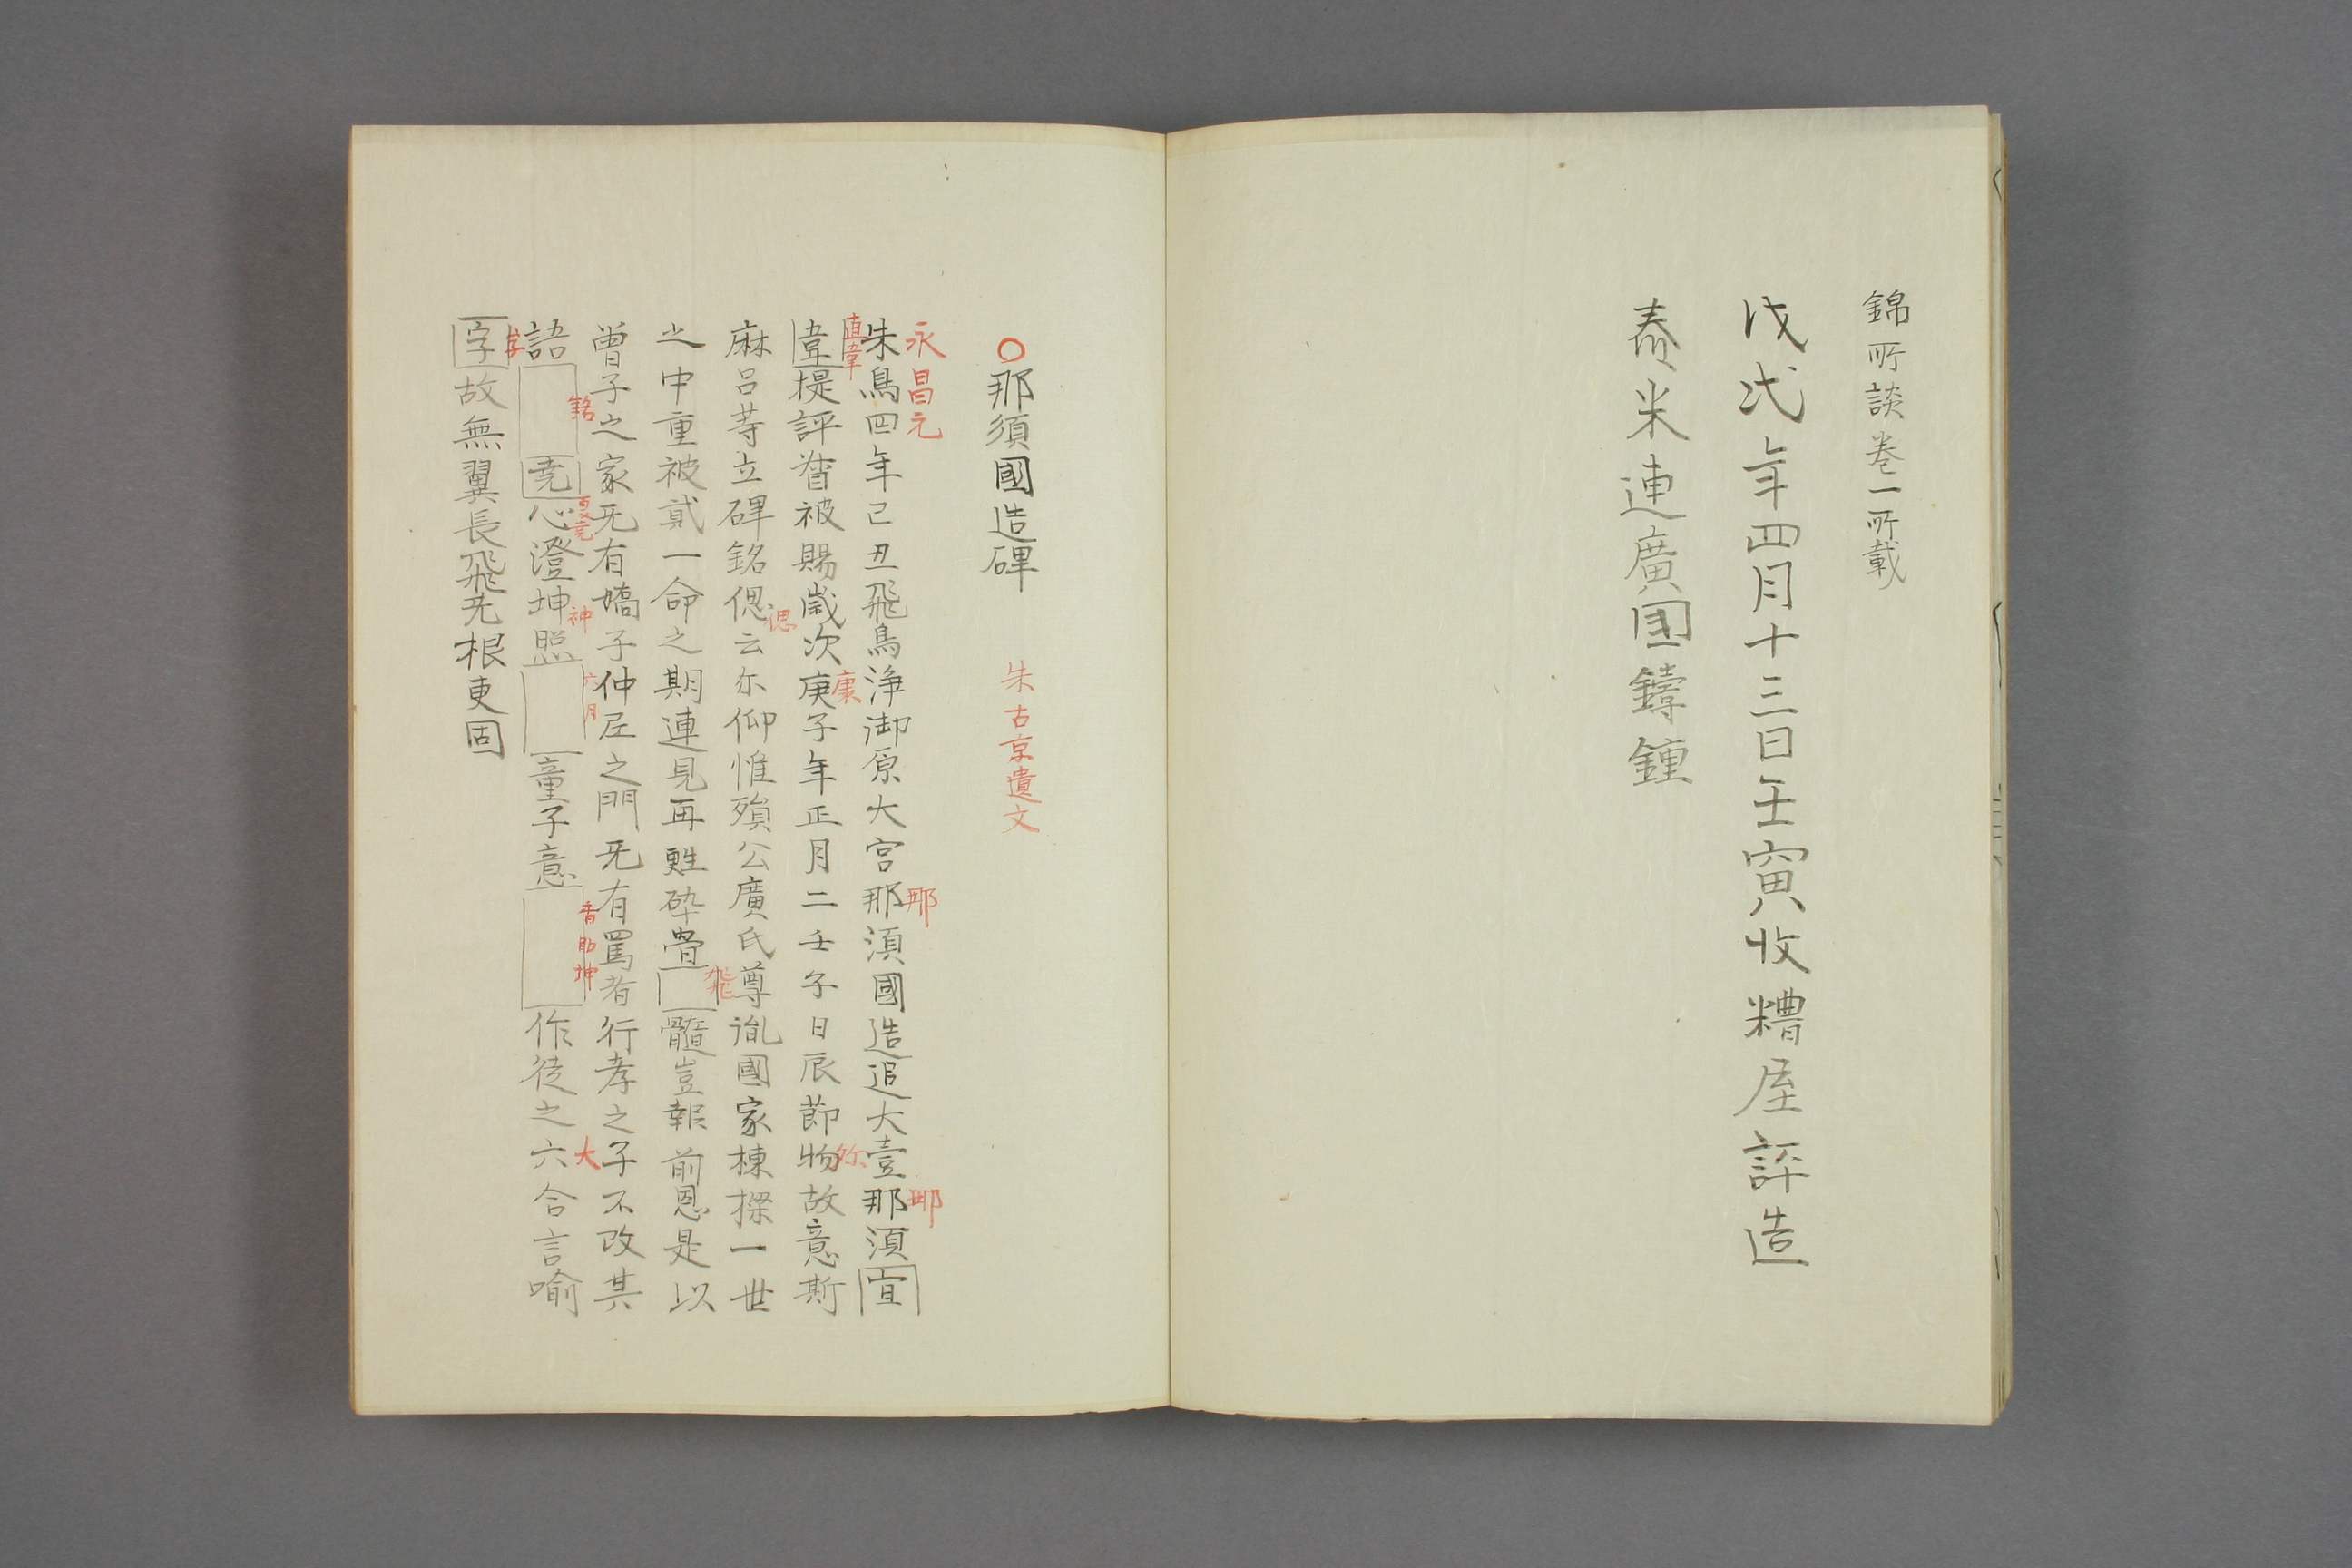 錦所談巻一所載
戊戌年四月十三日壬寅收糟屋評造
舂米連廣国鑄鍾
○那須國造碑
朱古京遺文
永昌元
朱鳥四年己丑飛鳥浄御原大宮那須國造追大壹那須宣
那
那
直韋
韋提評督被賜歲次庚子年正月二壬子日辰節物故意斯
康
弥
麻呂等立碑銘偲云尓仰惟殞公廣氏尊胤國家棟樑一世
偲
之中重被貳一命之期連見再甦砕骨髓豈報前恩是以
飛
曾子之家无有嬌子仲尼之門无有罵者行孝之子不改其
語 尭心澄坤照 童子意 作徒之六合言喻
銘
夏尭
神
六月
香助坤
大
字故無翼長飛无根更固
字